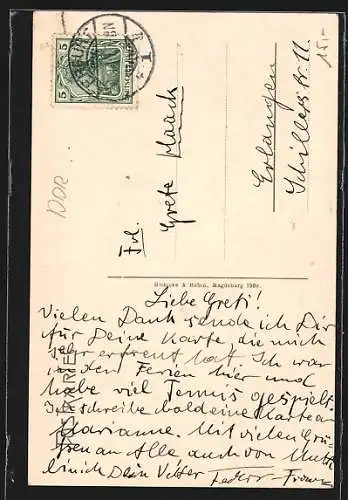 5 5
ERFURT
* 1 *
8-9N
DEUTSCHES REICH
15.-
Frl.
Grete
Erlangen
Schillerstr. 11.
Magdeburg
Liebe Gretl!
Vielen Dank sende ich Dir
für Deine Karte, die mich
sehr erfreut hat. Ich war
in den Ferien hier und
habe viel Tennis gespielt.
Ich schreibe bald eine Karte an
Marianne. Mit vielen Grü-
ßen an Alle auch von Mutti
bin ich Dein Vetter